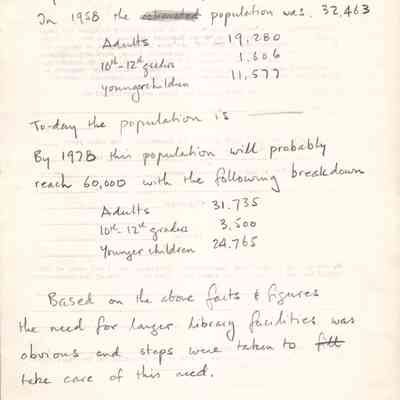 In 1958 the population was. 32,463
Adults 19,280
10th-12th grades 1,606
Younger children 11,577
To-day the population is
By 1978 this population will probably
reach 60,000 with the following breakdown
Adults 31,735
10th-12th grades 3,500
Younger children 24,765
Based on the above facts & figures
the need for larger library facilities was
obvious and steps were taken to fill
take care of this need.